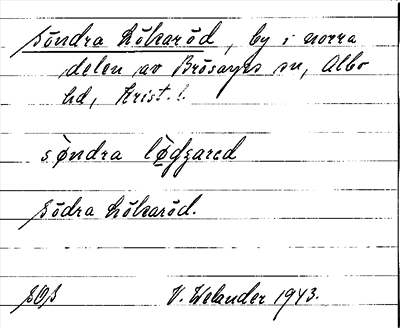 Söndra Lökaröd, by i norra
delen av Brösarps sn, Albo
hd, Krist. l.
sòndra lògzared
Södra Lökaröd.
SOS V. Welander 1943.